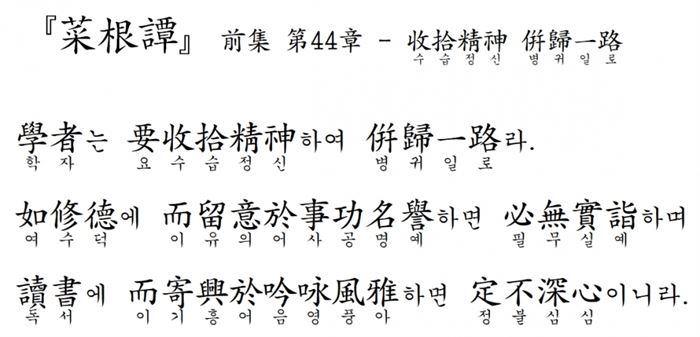 『菜根譚』 前集 第44章 - 收拾精神 倂歸一路
수습정신 병귀일로
學者는 要收拾精神하여 倂歸一路라.
학자 요수습정신 병귀일로
如修德에 而留意於事功名譽하면 必無實詣하며
여수덕 이유의어사공명예 필무실예
讀書에 而寄興於吟咏風雅하면 定不深心이니라.
독서 이기흥어음영풍아 정불심심